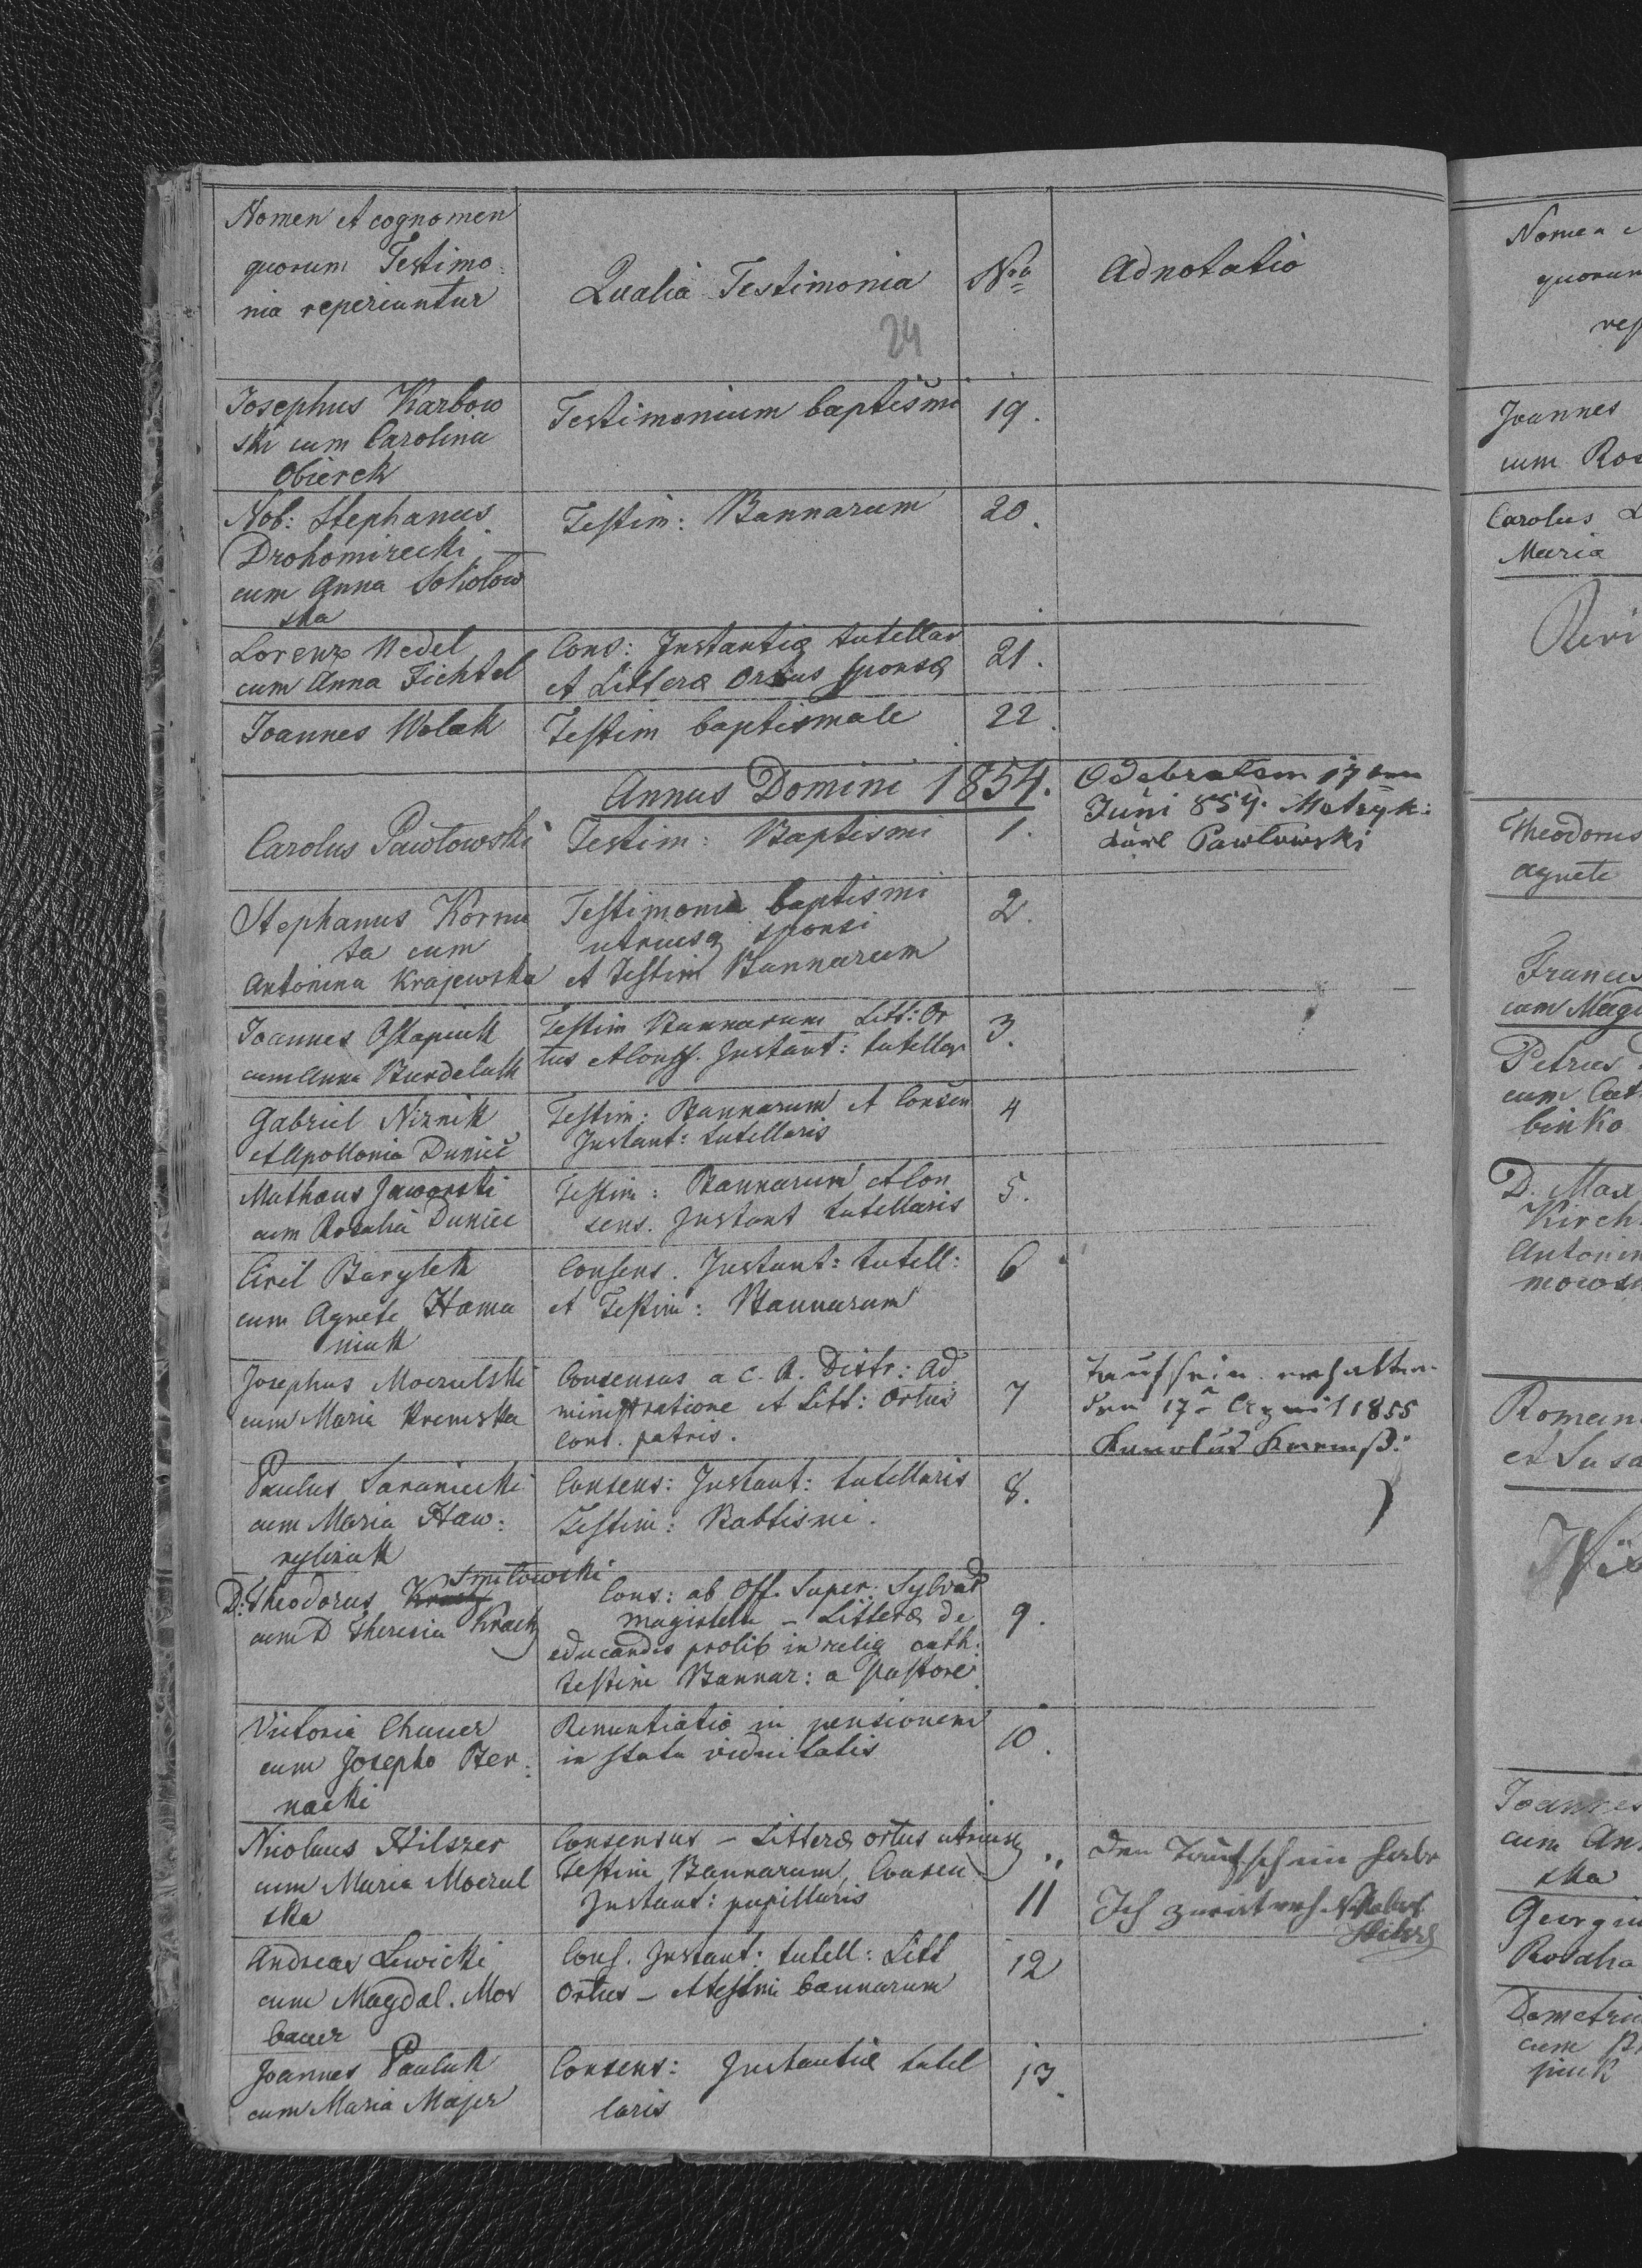 Nomen et cognomen
quorum Testimo
nia reperiuntur
Qualia Testimonia
Nro
Adnotatio
24
Josephus Karbow
ski cum Carolina
Obierek
Testimonium baptismi
19.
Nob: Stephanus
Drohomirecki
cum Anna Sokolow
ska
Testim: Bannarum
20.
Lorenz Nedel
cum Anna Fichtel
Cons: Instantiæ tutellar
et Litteræ Ortus sponsæ
21.
Joannes Wolak
Testim baptismale
22.
Annus Domini 1854.
Carolus Pawlowski
Testim: Baptismi
1.
Odebralem 17
Juni 854. Metryk:
Karl Pawlowski
Stephanus Kornu
ta cum
Antonina Krajewska
Testimonia baptismi
utriusq sponsi
et Testim Bannarum
2.
Joannes Ostapiuk
cum Anna Burdeluk
Testim Bannarum Litt: Or
tus et Cons. Instant: tutellar
3.
Gabriel Niznik
et Apollonia Duniec
Testim: Bannarum et Consen
Instant: tutellaris
4
Mathaus Jaworski
cum Rosalia Duniec
Testim: Bannarum et Con
sens. Instant tutellaris
5.
Ciril Barylek
cum Agnete Hama
niuk
Consens. Instant: tutell:
et Testim: Bannarum
6
Josephus Moczulski
cum Maria Kremska
Consensus a C. R. Distr: Ad
ministratione et Litt: Ortus
Cons. patris.
7
Taufschein erhalten
den 17 April 1855
Paulus Saraniecki
cum Maria Haw:
ryliuk
Consens: Instant: tutellaris
Testim: Babtismi.
8.
D: Theodorus Smitowski
cum D Theresia Krack
Cons: ab Off. Super: Sylvar
magistri – Litteræ de
educandis prolib in relig cath.
testim Bannar: a Pastore
9.
Victoria Chauer
cum Josepho Ber:
nacki
Renuntiatio in pensionem
in statu viduitatis
10.
Nicolaus Hilszer
cum Maria Moczul
ska
Consensus – Litteræ ortus utriusq
Testim Bannarum, Consen
Instant: pupillaris
11
den Taufschein habe
Ich zurück Nikolaus
Hilszer
Andreas Lewicki
cum Magdal. Mos
bauer
Cons. Instant: tutell: Litt
Ortus – et testim bannarum
12
Joannes Pauluk
cum Maria Majer
Consens: Instantiæ tutel
laris
13.
Nomen e
quorum
rep
Joannes
cum Ros
Carolus
Maria
Theodorus
Agnete
Francis
cum Mag
Petrus
cum Cat
binko
D. Max
Kirch
Antonin
Roman
et Susa
Joannes
cum An
ska
Georgiu
Rosalia
Demetriu
cum